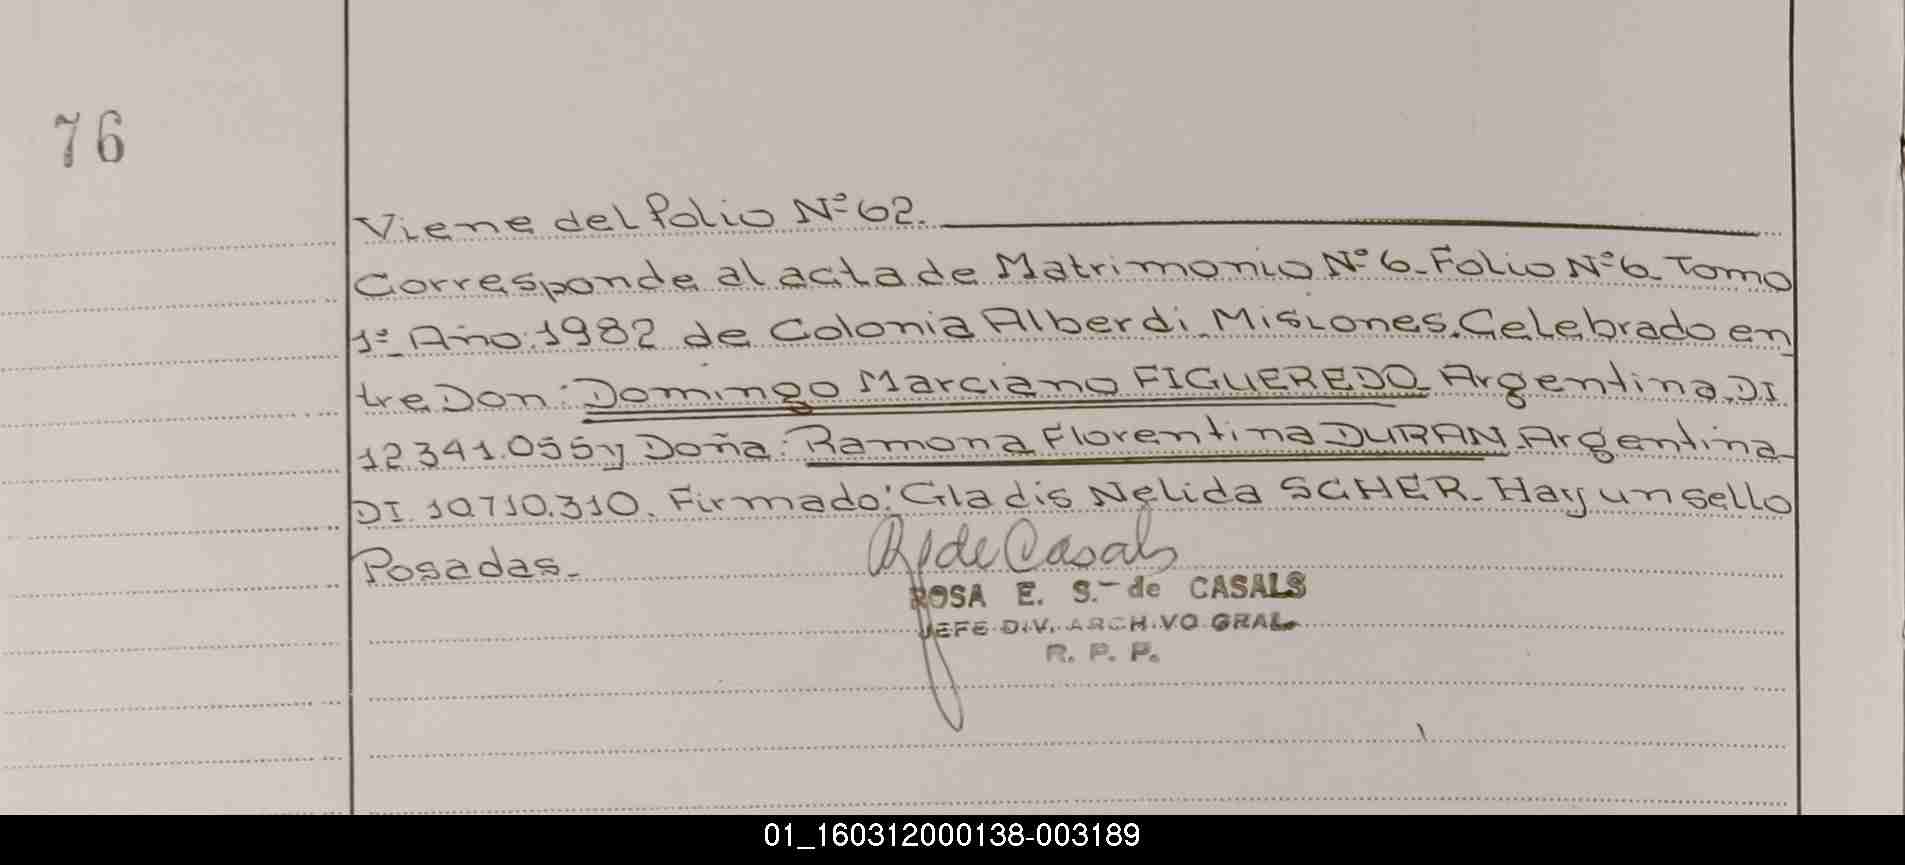 76
Viene del folio Nº 62.
Corresponde al acta de Matrimonio Nº 6. Folio Nº 6. Tomo
1º. Año: 1982 de Colonia Alberdi. Misiones. Celebrado en
tre Don: Domingo Marciano FIGUEREDO Argentina. DI
12341.055 y Doña: Ramona Florentina DURAN. Argentina
DI. 10.710.310. Firmado: Gladis Nelida SCHER. Hay un sello
Posadas.
R S de Casals
ROSA E. S. de CASALS
JEFE DIV. ARCHIVO GRAL.
R. P. P.
01_160312000138-003189